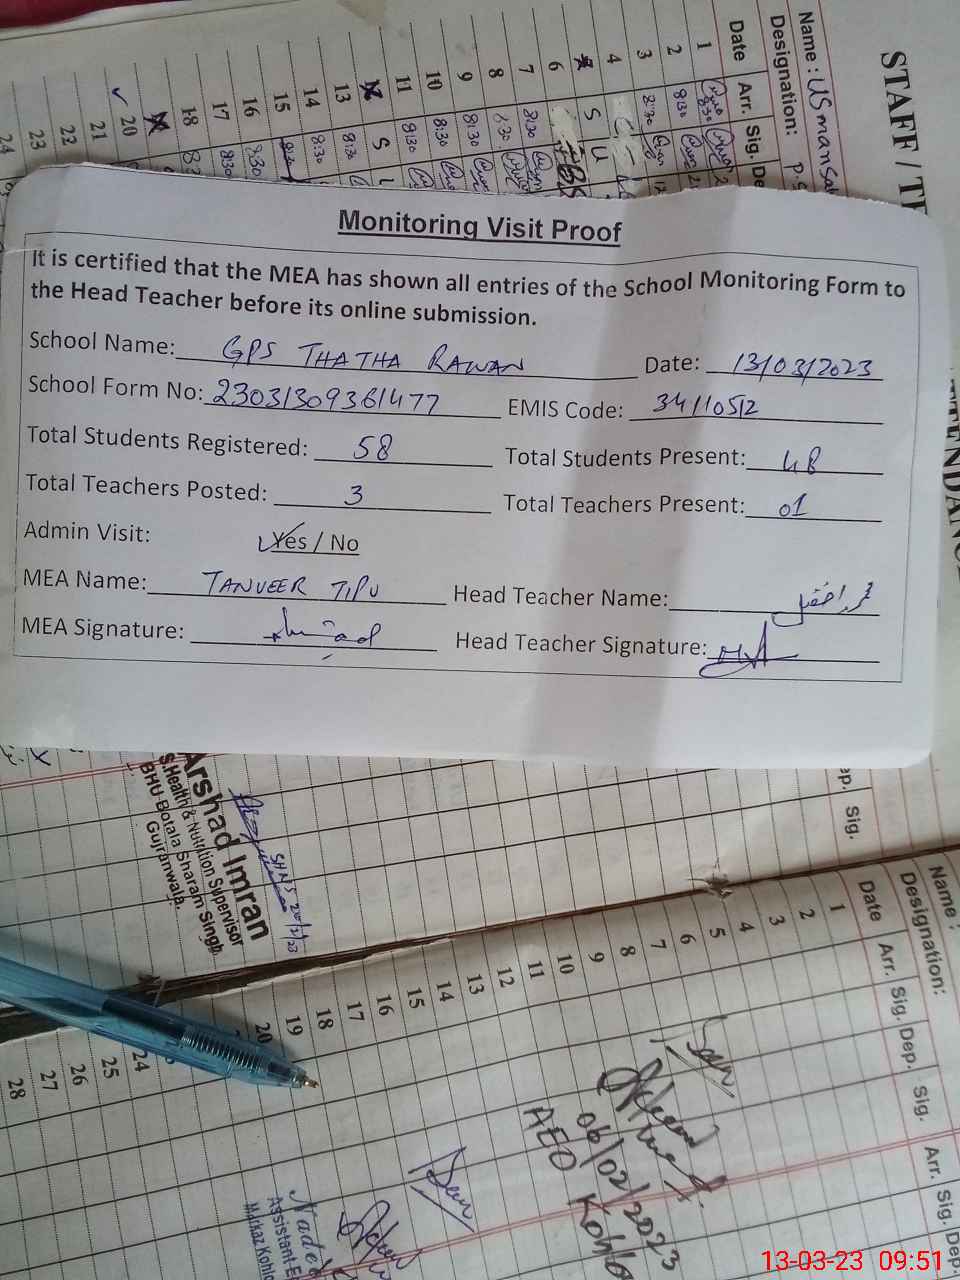 STAFF / TE
Name : Usman Sal
Designation: P.S
Date Arr. Sig. De
1 8:30
2 8:30
3 8:30
4
6
7 8:30
8 8:30
9 8:30
10 8:30
11 8:30
S
13 8:30
14 8:30
15
16 8:30
17 8:30
18
20
21
22
23
24
S U
TTENDANCE
Monitoring Visit Proof
It is certified that the MEA has shown all entries of the School Monitoring Form to
the Head Teacher before its online submission.
School Name: GPS THATHA RAWAN Date: 13/03/2023
School Form No: 23031309361477 EMIS Code: 34110512
Total Students Registered: 58 Total Students Present: 48
Total Teachers Posted: 3 Total Teachers Present: 01
Admin Visit: Yes / No
MEA Name: TANVEER TIPU Head Teacher Name:
MEA Signature: Head Teacher Signature:
Arshad Imran
S.Health & Nutrition Supervisor
BHU-Botala Sharam Singh
Gujranwala.
SHNS 20/2/23
ep. Sig.
Name :
Designation:
Date Arr. Sig. Dep. Sig. Arr. Sig. Dep.
1
2
3
4
5
6
7
8
9
10
11
12
13
14
15
16
17
18
19
20
24
25
26
27
28
Seen
06/02/2023
AEO Kohlo
Seen
Nadee
Assistant E
Markaz Kohlo
13-03-23 09:51